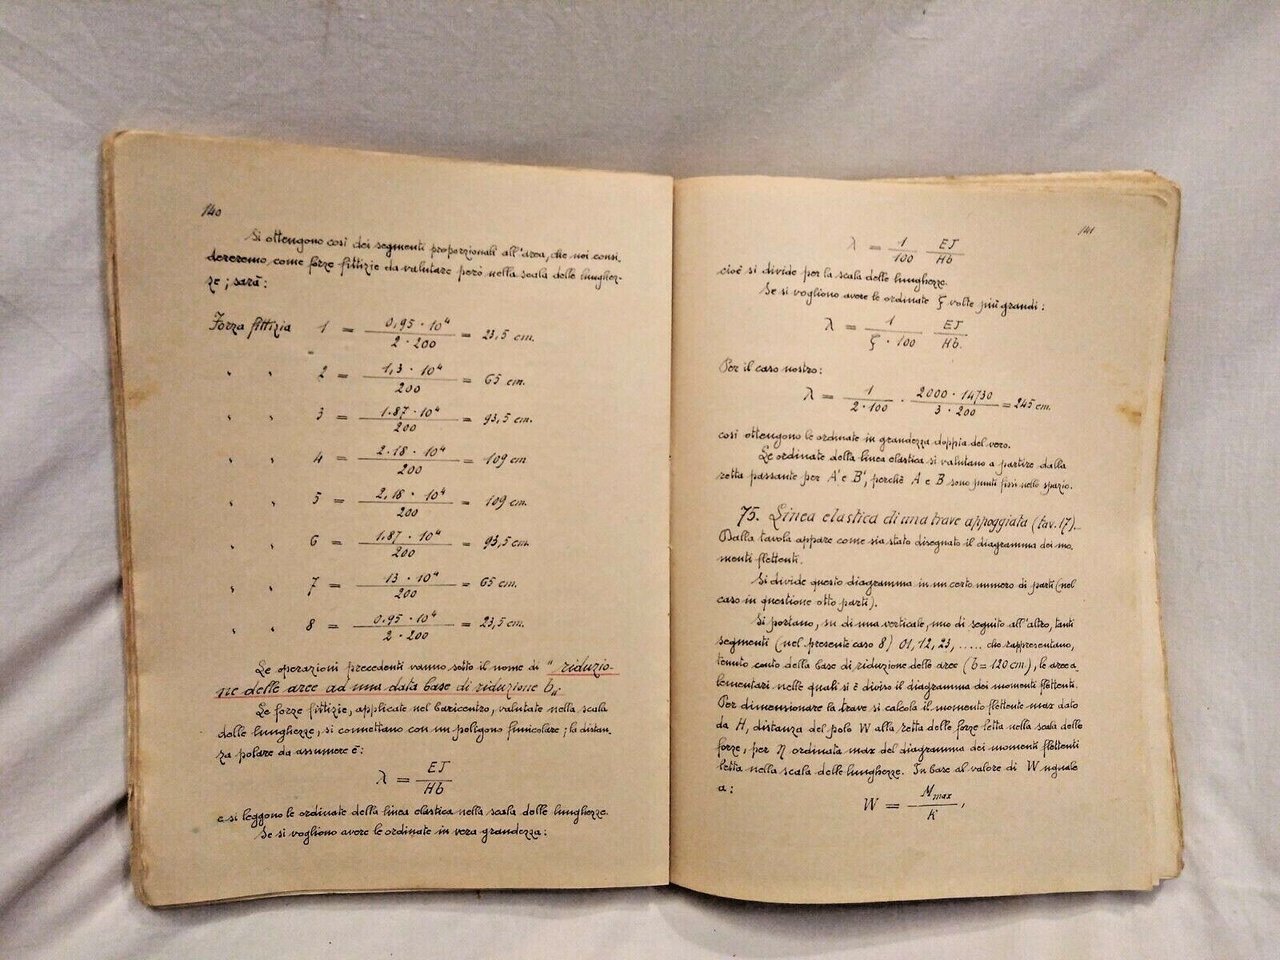 140
Si ottengono così dei segmenti proporzionali all'area, che noi consi
dereremo come forze fittizie da valutare però nella scala delle lunghez-
ze ; sarà :
Forza fittizia 1 = 0,95 · 10⁴ / 2 · 200 = 23,5 cm.
" " 2 = 1,3 · 10⁴ / 200 = 65 cm.
" " 3 = 1.87 · 10⁴ / 200 = 93,5 cm.
" " 4 = 2.18 · 10⁴ / 200 = 109 cm
" " 5 = 2,18 · 10⁴ / 200 = 109 cm.
" " 6 = 1,87 · 10⁴ / 200 = 93,5 cm.
" " 7 = 13 · 10⁴ / 200 = 65 cm.
" " 8 = 0.95 · 10⁴ / 2 · 200 = 23,5 cm.
Le operazioni precedenti vanno sotto il nome di " riduzio-
ne delle aree ad una data base di riduzione b „.
Le forze fittizie, applicate nel baricentro, valutate nella scala
delle lunghezze, si connettano con un poligono funicolare ; la distan.
za polare da assumere è :
λ = EJ / Hb
e si leggono le ordinate della linea elastica nella scala delle lunghezze.
Se si vogliono avere le ordinate in vera grandezza :
141
λ = 1 / 100 EJ / Hb
cioè si divide per la scala delle lunghezze.
Se si vogliono avere le ordinate ζ volte più grandi :
λ = 1 / ζ · 100 EJ / Hb.
Per il caso nostro :
λ = 1 / 2 · 100 · 2000 · 14730 / 3 · 200 = 245 cm.
così ottengono le ordinate in grandezza doppia del vero.
Le ordinate della linea elastica si valutano a partire dalla
retta passante per A' e B', perchè A e B sono punti fissi nello spazio.
75. Linea elastica di una trave appoggiata (tav. 17).
Dalla tavola appare come sia stato disegnato il diagramma dei mo.
menti flettenti.
Si divide questo diagramma in un certo numero di parti (nel
caso in questione otto parti).
Si portano, su di una verticale, uno di seguito all'altro, tanti
segmenti (nel presente caso 8) 01, 12, 23, ..... che rappresentano,
tenuto conto della base di riduzione delle aree (b = 120 cm.), le aree e.
lementari nelle quali si è diviso il diagramma dei momenti flettenti.
Per dimensionare la trave si calcola il momento flettente max dato
da H, distanza del polo W alla retta delle forze letta nella scala delle
forze, per η ordinata max del diagramma dei momenti flettenti
letta nella scala delle lunghezze. In base al valore di W uguale
a :
W = Mmax / K ,